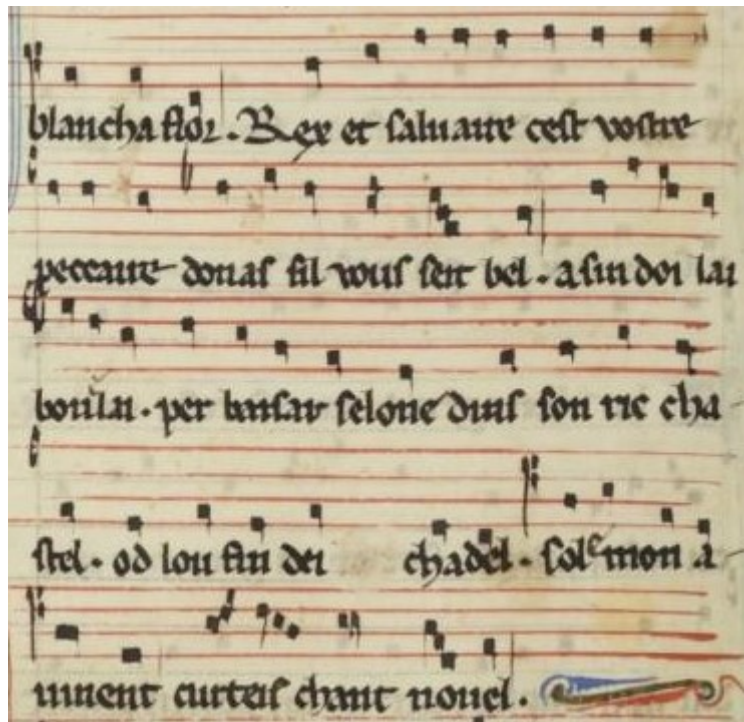 blancha flor. Rex et saluaire cest vostre
peccaire donas fil vous seit bel. a sun doi lai
boulai. per baisar selone duis son ric cha
stel. od lou fin dei chadel. solemon a
uinent curteis chant nouel.